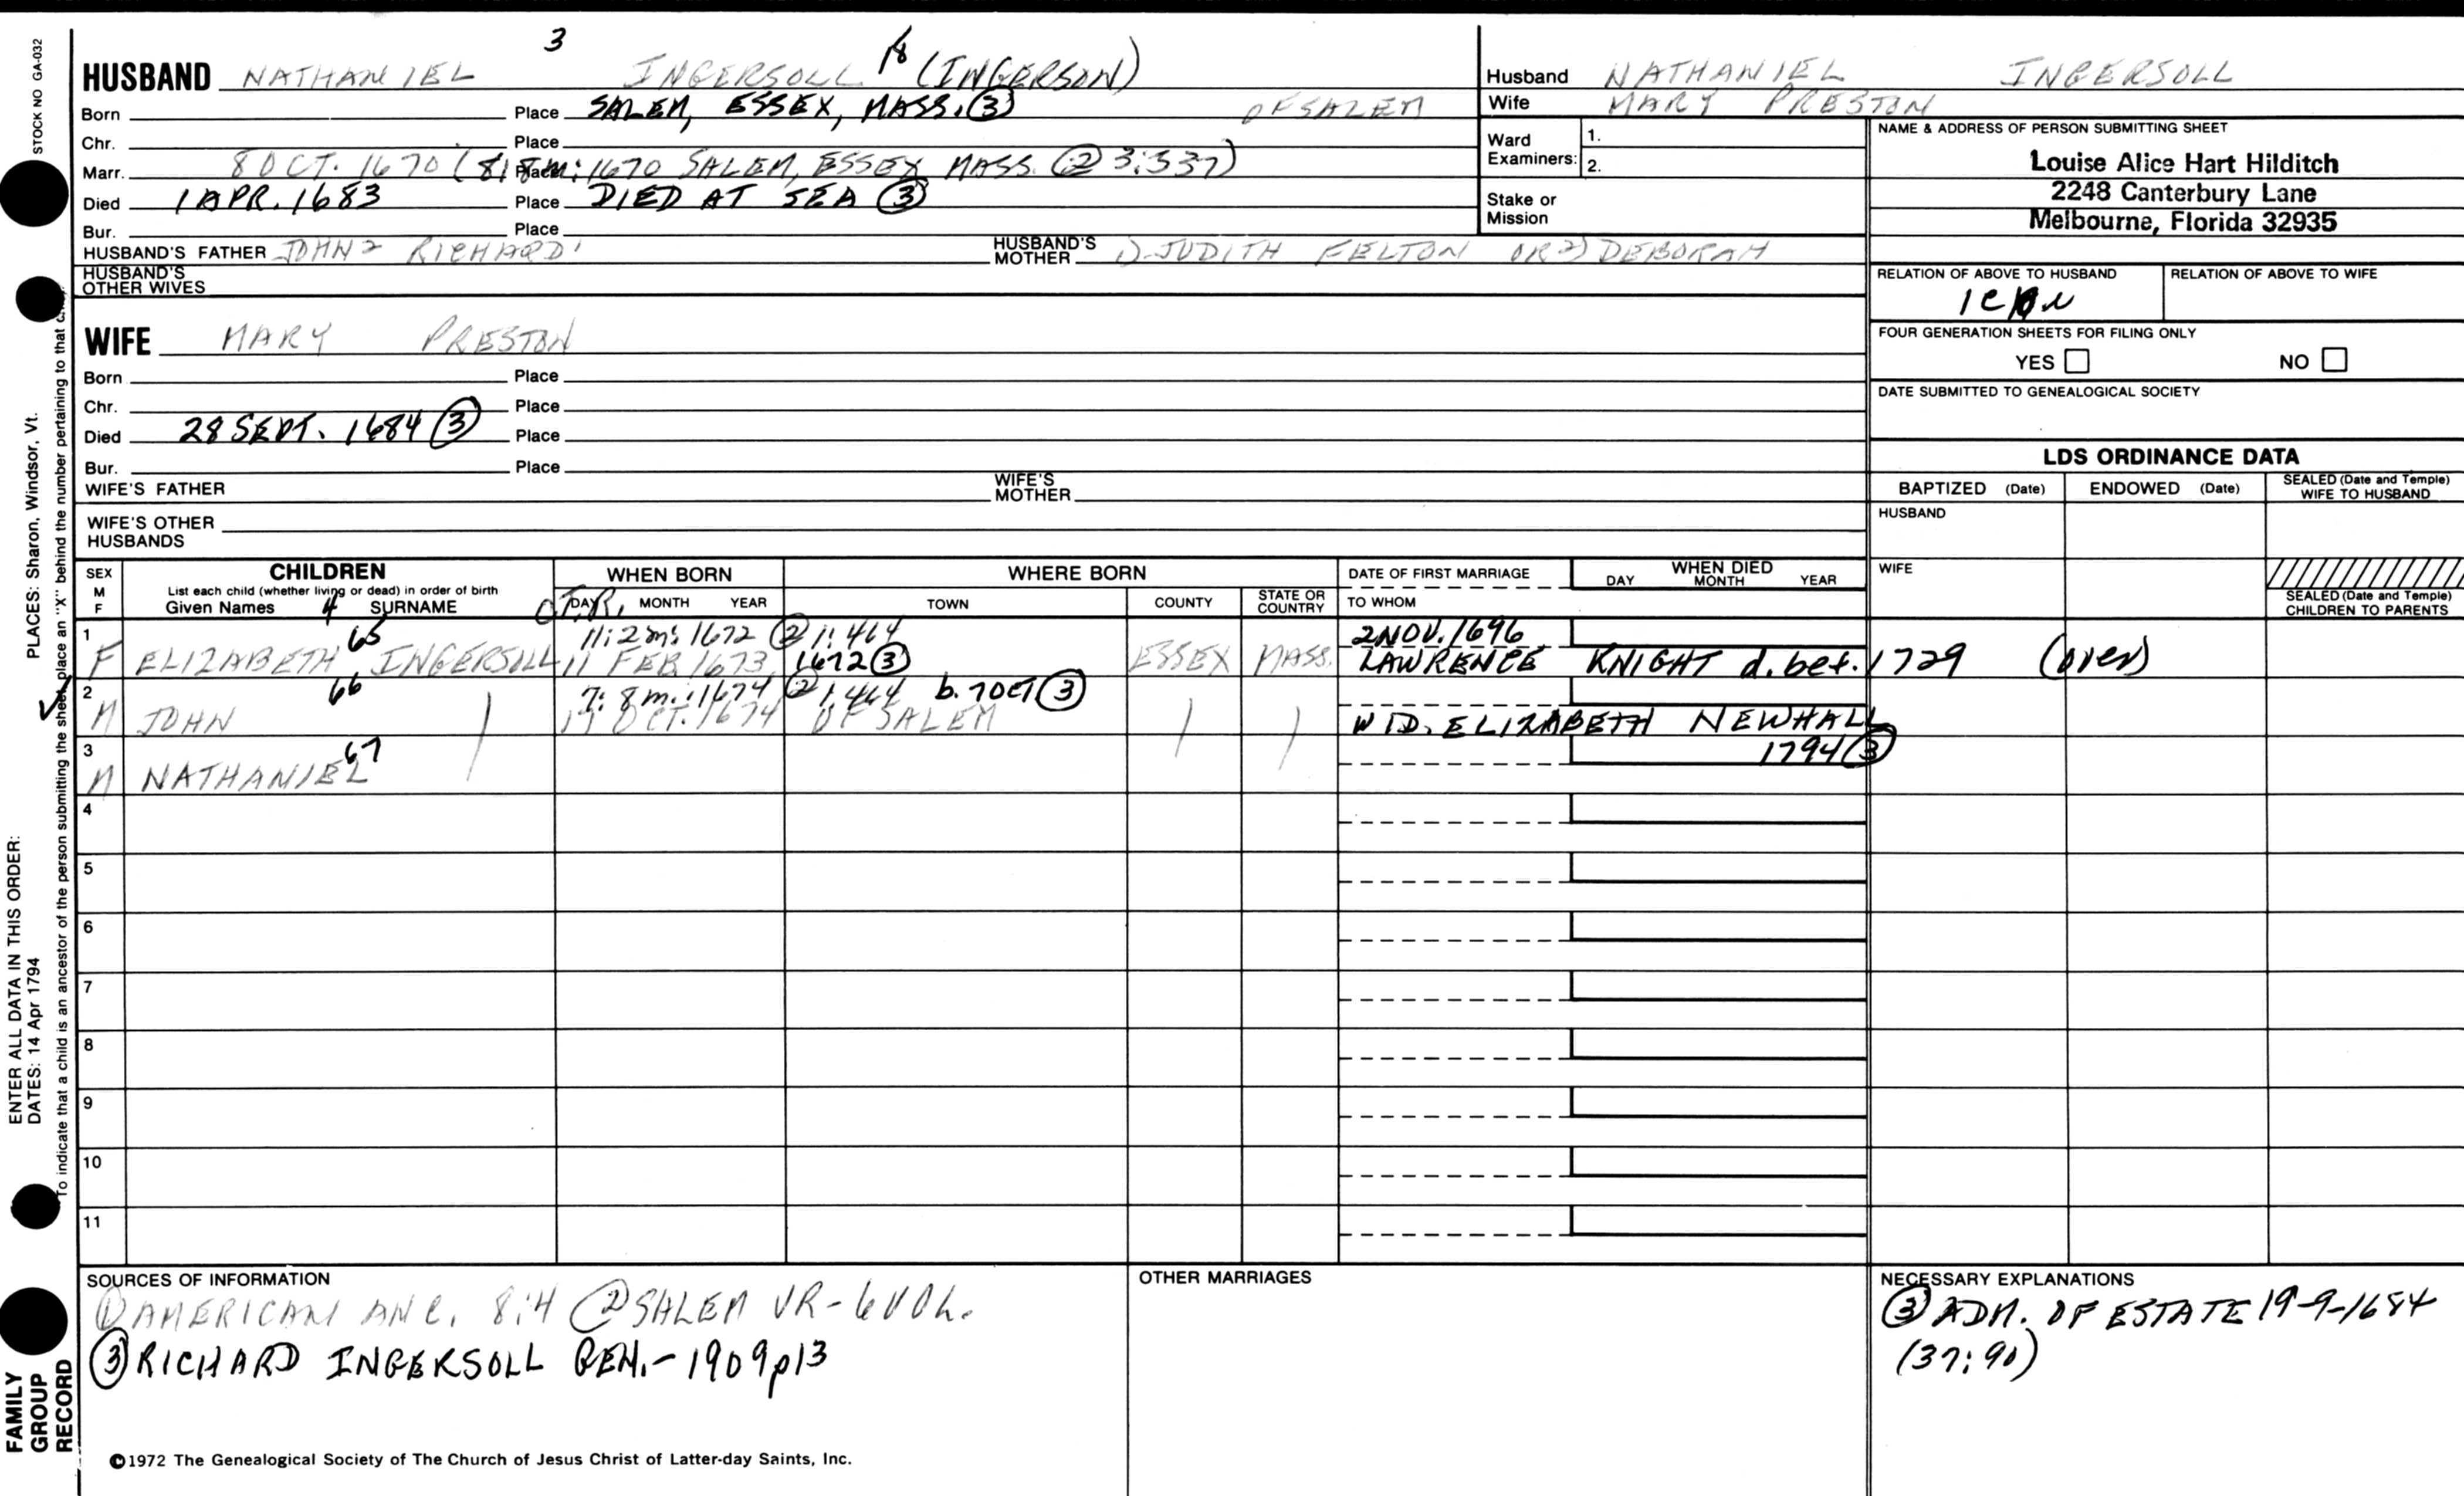 3 18
HUSBAND NATHANIEL INGERSOLL (INGERSON)
Born Place SALEM, ESSEX, MASS. (3) OF SALEM
Chr. Place
Marr. 8 OCT. 1670 (8: 8m: 1670 SALEM, ESSEX MASS. (2) 3:537)
Died 1 APR. 1683 Place DIED AT SEA (3)
Bur. Place
HUSBAND'S FATHER JOHN 2 RICHARD 1 HUSBAND'S MOTHER 1) JUDITH FELTON OR 2) DEBORAH
HUSBAND'S OTHER WIVES
WIFE MARY PRESTON
Born Place
Chr. Place
Died 28 SEPT. 1684 (3) Place
Bur. Place
WIFE'S FATHER WIFE'S MOTHER
WIFE'S OTHER HUSBANDS
Husband NATHANIEL INGERSOLL
Wife MARY PRESTON
Ward Examiners: 1.
2.
Stake or Mission
NAME & ADDRESS OF PERSON SUBMITTING SHEET
Louise Alice Hart Hilditch
2248 Canterbury Lane
Melbourne, Florida 32935
RELATION OF ABOVE TO HUSBAND RELATION OF ABOVE TO WIFE
FOUR GENERATION SHEETS FOR FILING ONLY
YES NO
DATE SUBMITTED TO GENEALOGICAL SOCIETY
LDS ORDINANCE DATA
BAPTIZED (Date) ENDOWED (Date) SEALED (Date and Temple) WIFE TO HUSBAND
HUSBAND
WIFE
SEALED (Date and Temple) CHILDREN TO PARENTS
SEX M F
CHILDREN
List each child (whether living or dead) in order of birth
Given Names 4 SURNAME
WHEN BORN
DAY MONTH YEAR
WHERE BORN
TOWN COUNTY STATE OR COUNTRY
DATE OF FIRST MARRIAGE
TO WHOM
WHEN DIED
DAY MONTH YEAR
1 65 11: 2m: 1672 (2) 1:464 2 NOV. 1696
F ELIZABETH INGERSOLL 11 FEB 1673 1672 (3) ESSEX MASS. LAWRENCE KNIGHT d. bef. 1729 (over)
2 66 7: 8m.: 1674 (2) 1:464 b. 7 OCT (3)
M JOHN OCT. 1674 OF SALEM WID. ELIZABETH NEWHALL
3 67 1794 (3)
M NATHANIEL
4
5
6
7
8
9
10
11
SOURCES OF INFORMATION
(1) AMERICAN ANC. 8:4 (2) SALEM VR - 6 VOL.
(3) RICHARD INGERSOLL GEN. - 1909 p13
OTHER MARRIAGES
NECESSARY EXPLANATIONS
(3) ADM. OF ESTATE 19-9-1684
(37:90)
©1972 The Genealogical Society of The Church of Jesus Christ of Latter-day Saints, Inc.
STOCK NO GA-032
PLACES: Sharon, Windsor, Vt.
ENTER ALL DATA IN THIS ORDER:
DATES: 14 Apr 1794
To indicate that a child is an ancestor of the person submitting the sheet, place an "X" behind the number pertaining to that
FAMILY GROUP RECORD